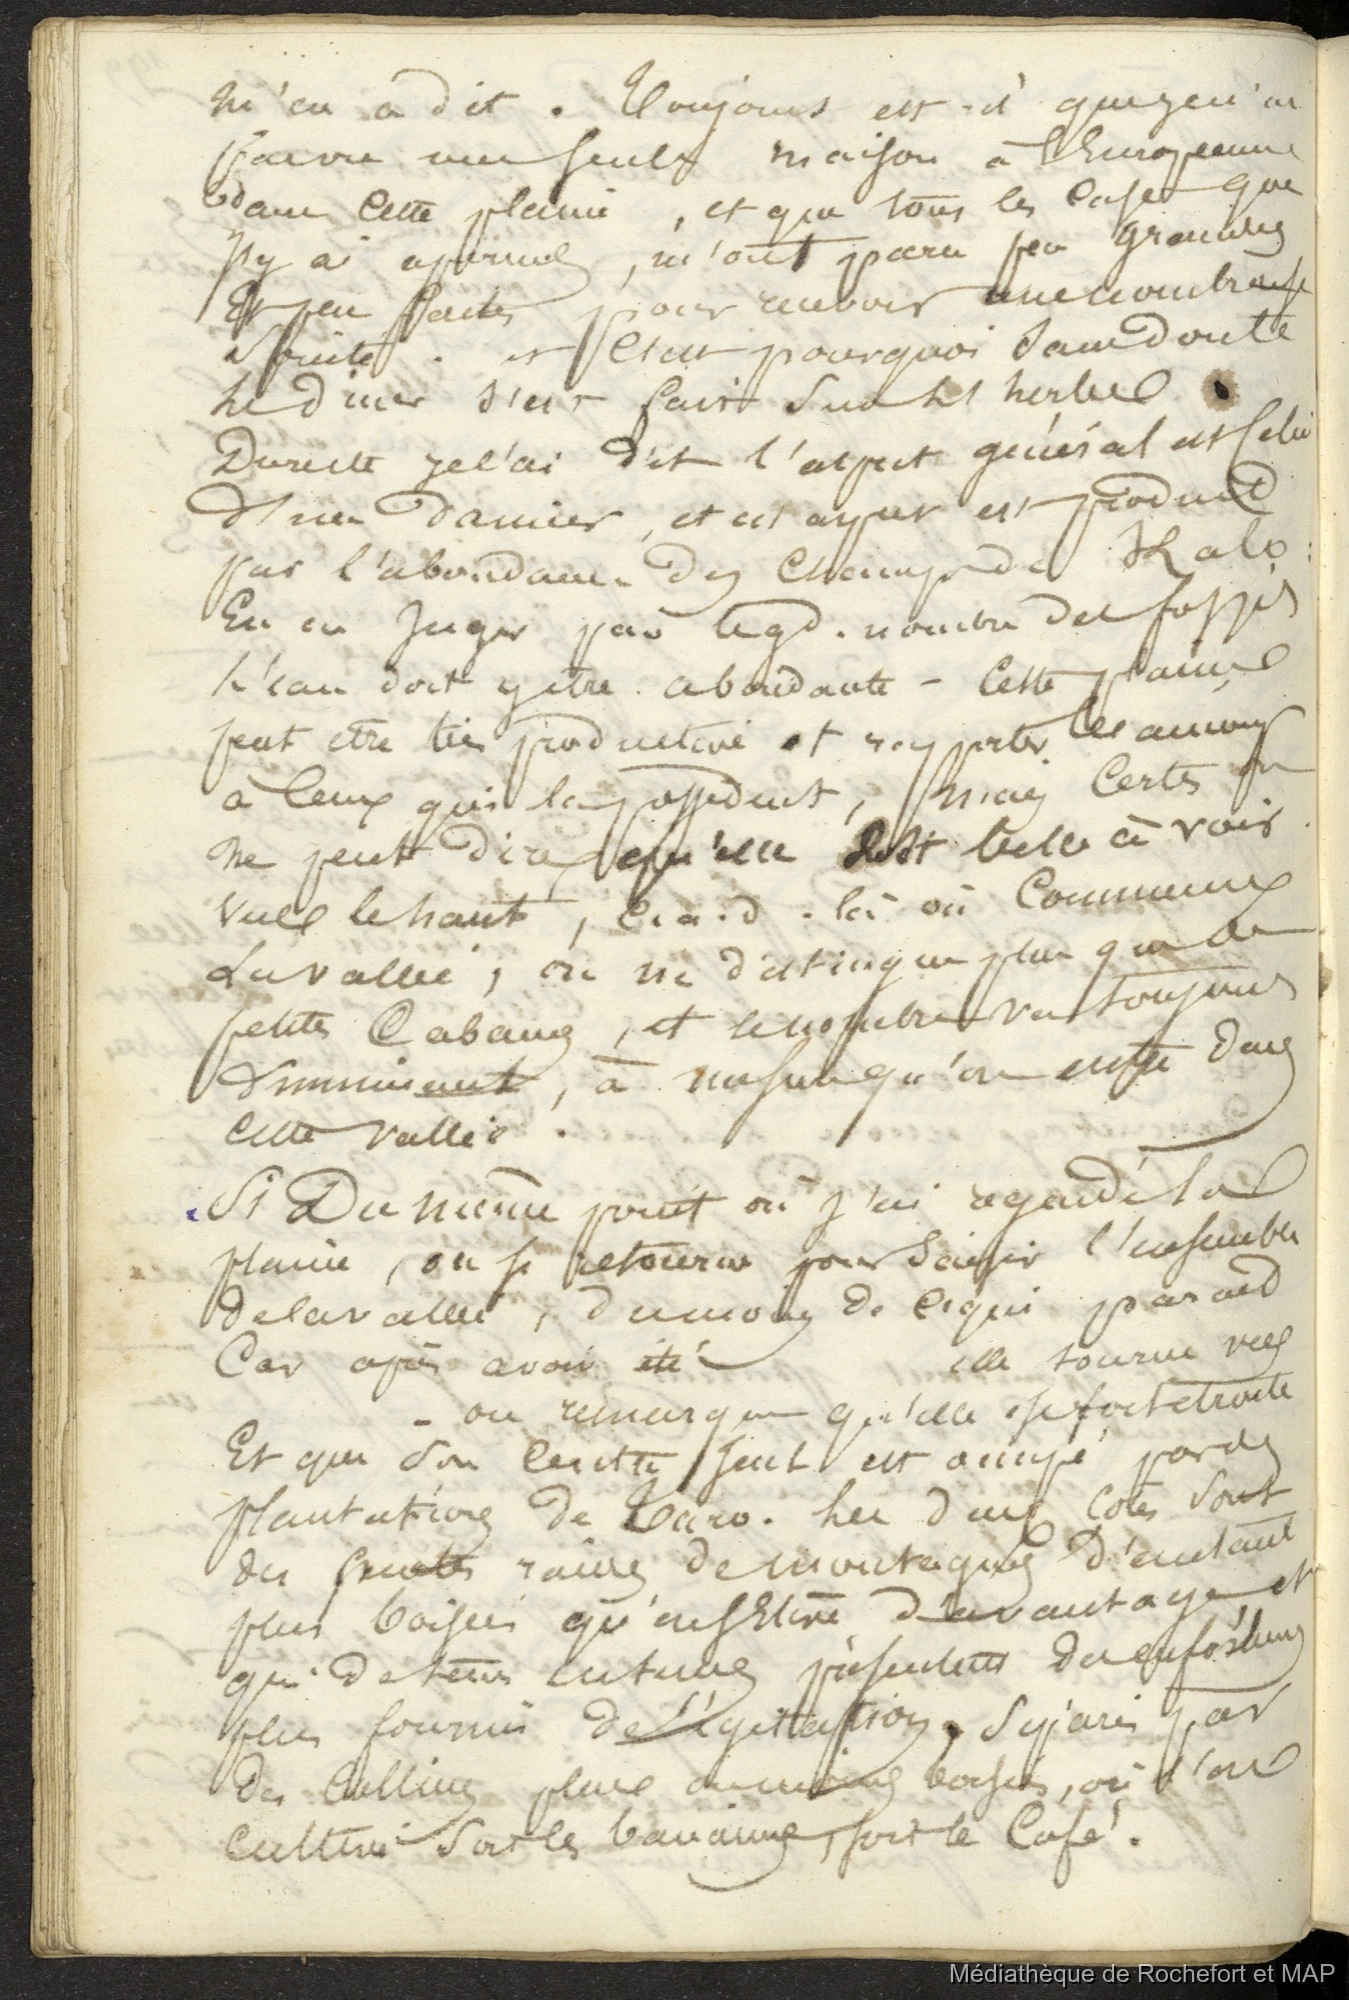 m'en a dit. Toujours est-il que je n'ai
pas vu une seule maison à l'Européenne
dans cette plaine, et que tous les cases que
j'y ai aperçues, m'ont paru peu grandes
Et peu faites pour recevoir une nombreuse
Société. et C'est pourquoi Sans doute
le diner s'est fait Sur les herbes.
Dureste je l'ai dit l'aspect général est Celui
d'un damier, et cet aspect est produit
par l'abondance des Champs de Kalo:
En en Juger par le gd. nombre des fossés
l'eau doit y être abondante - Cette plaine
peut être très productive et rapporter
à Ceux qui la possèdent, mais Certes on
ne peut dire qu'elle soit belle à voir.
Vers le haut, c.a.d. là où Commence
La vallée, on ne distingue plus que de
petites Cabanes, et le nombre va toujours
diminuant, à mesure qu'on entre dans
Cette vallée.
Si Du même point où j'ai regardé la
plaine, on se retourne pour Saisir l'ensemble
de la vallée, du moins de Ce qui parait
Car après avoir été elle tourne vers
- on remarque qu'elle est fort étroite
Et que Son Centre seul est occupé par des
plantations de Taro. Les deux Côtés Sont
des ravins de montagnes d'autant
plus boisées qu'on s'élève d'avantage et
qui de tems en tems présentent des enfoncemens
plus fournis de Végétation, Séparés par
des Collines plus ou moins boisées, où l'on
Cultive Soit les bananes, soit le Café.
Médiathèque de Rochefort et MAP